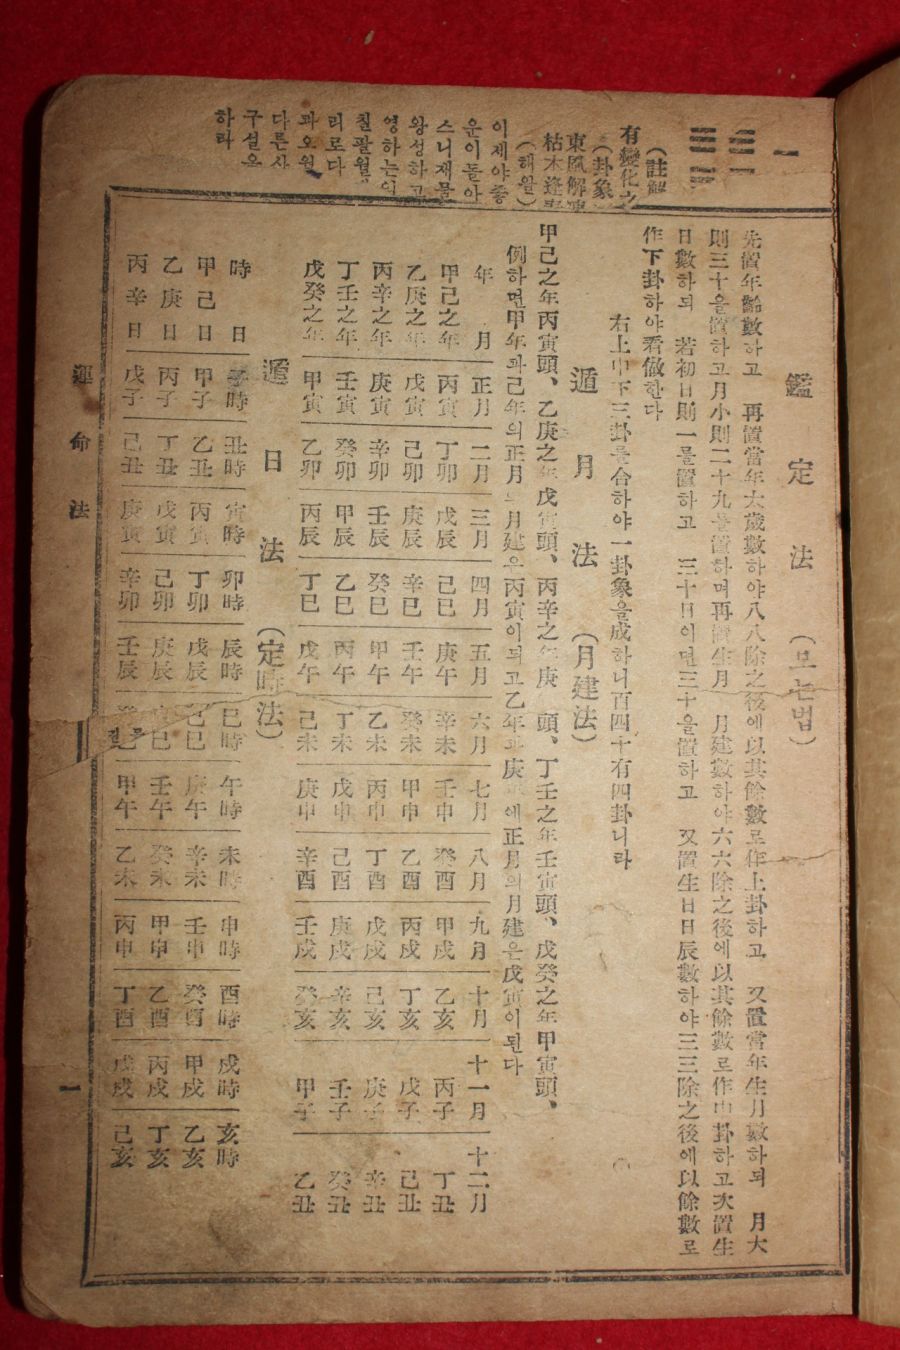 一
(註解
有變化之
(卦象
東風解凍
枯木逢春
(해왈)
이제야좋
운이돌아
스니재물
왕성하고
영하는이
칠팔월
리로다
과오월
다른사
구설은
하라
鑑定法 (보는법)
先置年齡數하고 再置當年太歲數하야八八除之後에以其餘數로作上卦하고 又置當年生月數하되 月大
則三十을置하고月小則二十九를置하며再置生月 月建數하야六六除之後에以其餘數로作中卦하고次置生
日數하되 若初日則一을置하고 三十日이면三十을置하고 又置生日日辰數하야三三除之後에以餘數로
作下卦하야看做한다
右上中下三卦를合하야一卦象을成하니百四十有四卦니라
遁月法 (月建法)
甲己之年丙寅頭、乙庚之年戊寅頭、丙辛之年庚 頭、丁壬之年壬寅頭、戊癸之年甲寅頭、
例하면甲年과己年의正月 月建은丙寅이되고乙年과庚 에正月의月建은戊寅이된다
年 月 正月 二月 三月 四月 五月 六月 七月 八月 九月 十月 十一月 十二月
甲己之年 丙寅 丁卯 戊辰 己巳 庚午 辛未 壬申 癸酉 甲戌 乙亥 丙子 丁丑
乙庚之年 戊寅 己卯 庚辰 辛巳 壬午 癸未 甲申 乙酉 丙戌 丁亥 戊子 己丑
丙辛之年 庚寅 辛卯 壬辰 癸巳 甲午 乙未 丙申 丁酉 戊戌 己亥 庚子 辛丑
丁壬之年 壬寅 癸卯 甲辰 乙巳 丙午 丁未 戊申 己酉 庚戌 辛亥 壬子 癸丑
戊癸之年 甲寅 乙卯 丙辰 丁巳 戊午 己未 庚申 辛酉 壬戌 癸亥 甲子 乙丑
遁日法 (定時法)
時 日 子時 丑時 寅時 卯時 辰時 巳時 午時 未時 申時 酉時 戌時 亥時
甲己日 甲子 乙丑 丙寅 丁卯 戊辰 己巳 庚午 辛未 壬申 癸酉 甲戌 乙亥
乙庚日 丙子 丁丑 戊寅 己卯 庚辰 巳 壬午 癸未 甲申 乙酉 丙戌 丁亥
丙辛日 戊子 己丑 庚寅 辛卯 壬辰 甲午 乙未 丙申 丁酉 戊戌 己亥
運命法
一